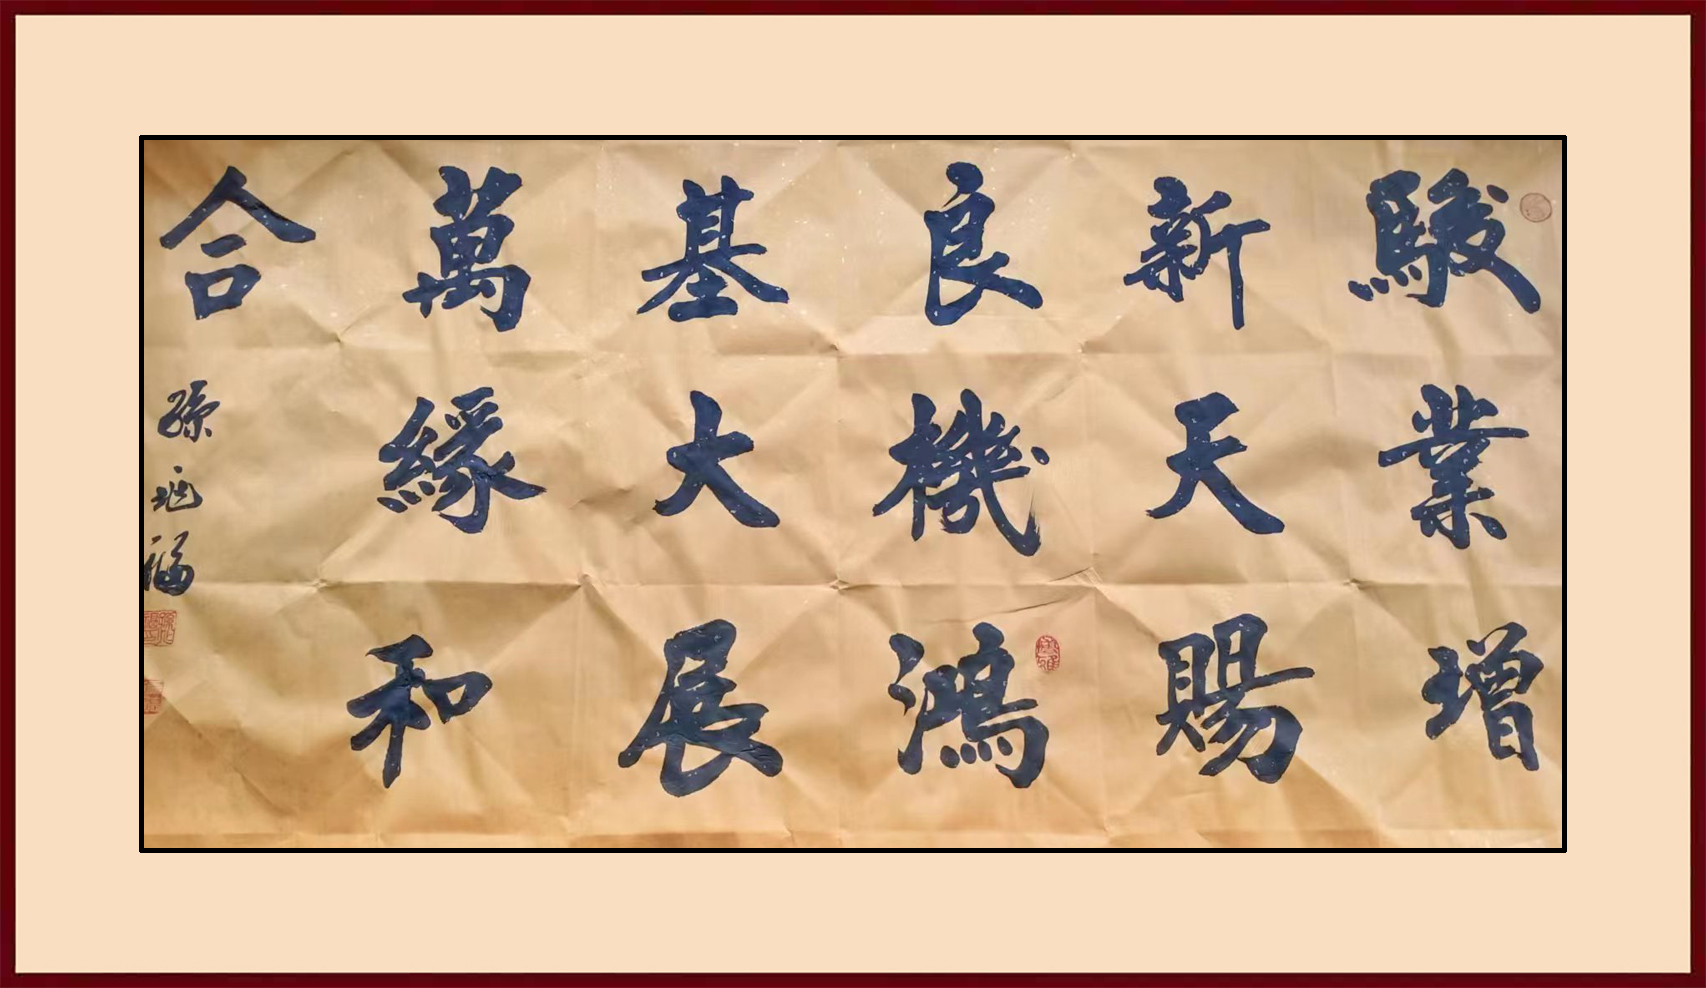 駿業增
新天賜
良機鴻
基大展
萬緣和
合
孫福